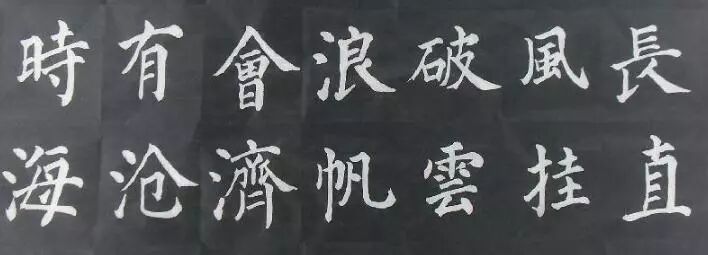 長風破浪會有時
直挂雲帆濟沧海